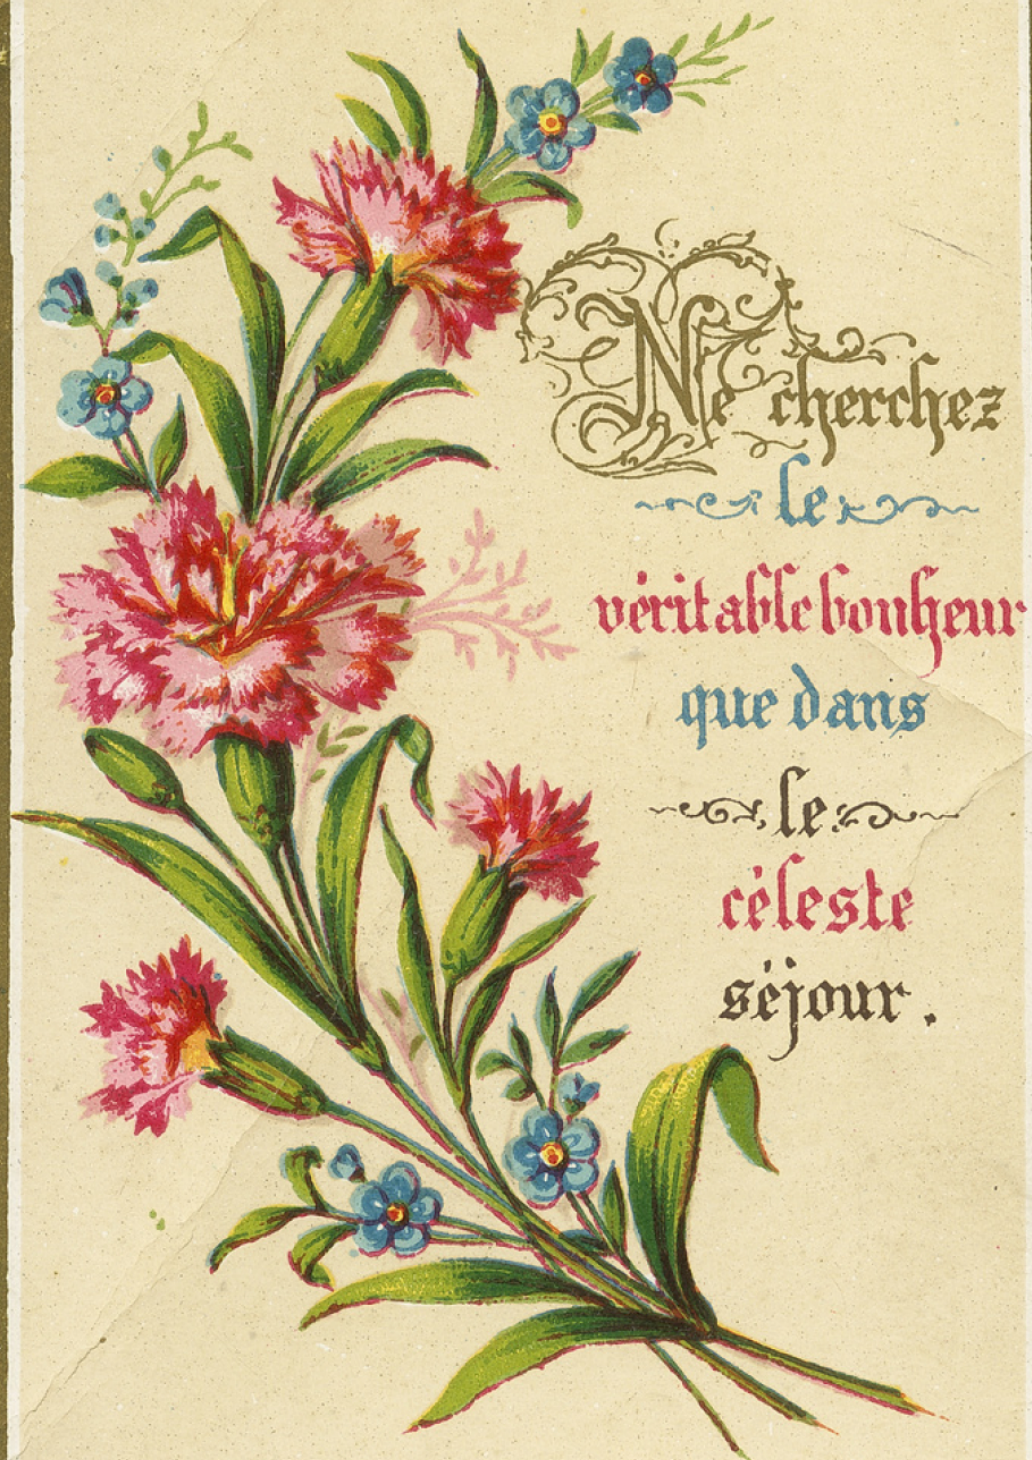 Ne cherchez
le
véritable bonheur
que dans
le
céleste
séjour.